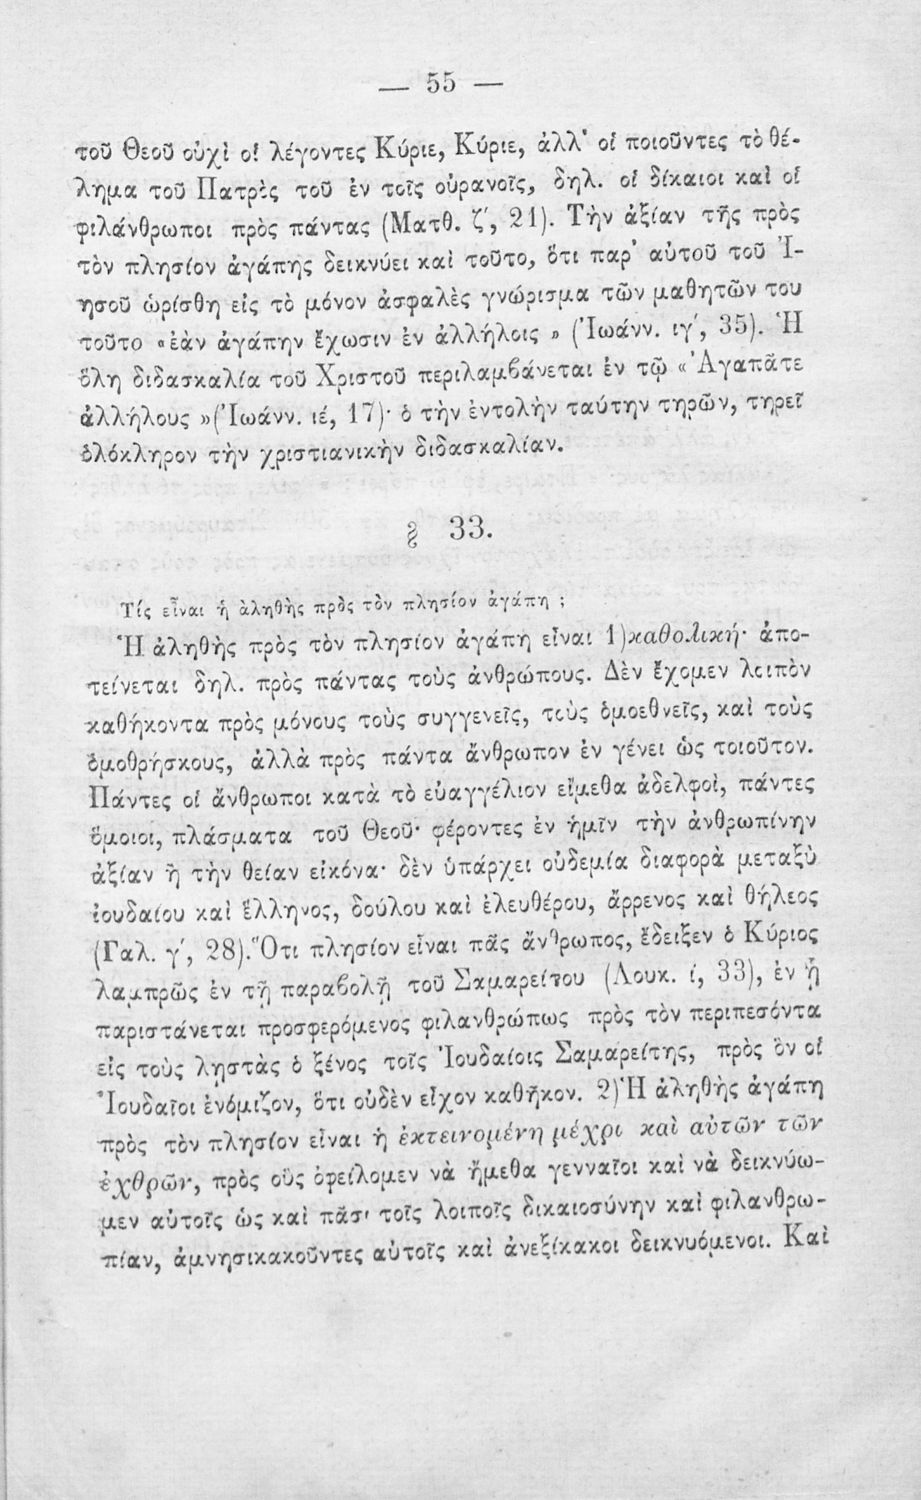 — 55 —
τοῦ Θεοῦ οὐχὶ οἱ λέγοντες Κύριε, Κύριε, ἀλλ' οἱ ποιοῦντες τὸ θέ-
λημα τοῦ Πατρὸς τοῦ ἐν τοῖς οὐρανοῖς, δηλ. οἱ δίκαιοι καὶ οἱ
φιλάνθρωποι πρὸς πάντας (Ματθ. ζ', 21). Τὴν ἀξίαν τῆς πρὸς
τὸν πλησίον ἀγάπης δεικνύει καὶ τοῦτο, ὅτι παρ' αὐτοῦ τοῦ Ἰ-
ησοῦ ὡρίσθη εἰς τὸ μόνον ἀσφαλὲς γνώρισμα τῶν μαθητῶν του
τοῦτο «ἐὰν ἀγάπην ἔχωσιν ἐν ἀλλήλοις » (Ἰωάνν. ιγ', 35). Ἡ
ὅλη διδασκαλία τοῦ Χριστοῦ περιλαμβάνεται ἐν τῷ « Ἀγαπᾶτε
ἀλλήλους »(Ἰωάνν. ιέ, 17)· ὁ τὴν ἐντολὴν ταύτην τηρῶν, τηρεῖ
ὁλόκληρον τὴν χριστιανικὴν διδασκαλίαν.
§ 33.
Τίς εἶναι ἡ ἀληθὴς πρὸς τὸν πλησίον ἀγάπη ;
Ἡ ἀληθὴς πρὸς τὸν πλησίον ἀγάπη εἶναι 1)καθολική· ἀπο-
τείνεται δηλ. πρὸς πάντας τοὺς ἀνθρώπους. Δὲν ἔχομεν λοιπὸν
καθήκοντα πρὸς μόνους τοὺς συγγενεῖς, τοὺς ὁμοεθνεῖς, καὶ τοὺς
ὁμοθρήσκους, ἀλλὰ πρὸς πάντα ἄνθρωπον ἐν γένει ὡς τοιοῦτον.
Πάντες οἱ ἄνθρωποι κατὰ τὸ εὐαγγέλιον εἴμεθα ἀδελφοί, πάντες
ὅμοιοι, πλάσματα τοῦ Θεοῦ· φέροντες ἐν ἡμῖν τὴν ἀνθρωπίνην
ἀξίαν ἢ τὴν θείαν εἰκόνα· δὲν ὑπάρχει οὐδεμία διαφορὰ μεταξὺ
ἰουδαίου καὶ ἕλληνος, δούλου καὶ ἐλευθέρου, ἄρρενος καὶ θήλεος
(Γαλ. γ', 28). Ὅτι πλησίον εἶναι πᾶς ἄνθρωπος, ἔδειξεν ὁ Κύριος
λαμπρῶς ἐν τῇ παραβολῇ τοῦ Σαμαρείτου (Λουκ. ί, 33), ἐν ᾗ
παριστάνεται προσφερόμενος φιλανθρώπως πρὸς τὸν περιπεσόντα
εἰς τοὺς λῃστὰς ὁ ξένος τοῖς Ἰουδαίοις Σαμαρείτης, πρὸς ὃν οἱ
Ἰουδαῖοι ἐνόμιζον, ὅτι οὐδὲν εἶχον καθῆκον. 2)Ἡ ἀληθὴς ἀγάπη
πρὸς τὸν πλησίον εἶναι ἡ ἐκτεινομένη μέχρι καὶ αὐτῶν τῶν
ἐχθρῶν, πρὸς οὓς ὀφείλομεν νὰ ἤμεθα γενναῖοι καὶ νὰ δεικνύω-
μεν αὐτοῖς ὡς καὶ πᾶσι τοῖς λοιποῖς δικαιοσύνην καὶ φιλανθρω-
πίαν, ἀμνησικακοῦντες αὐτοῖς καὶ ἀνεξίκακοι δεικνυόμενοι. Καὶ